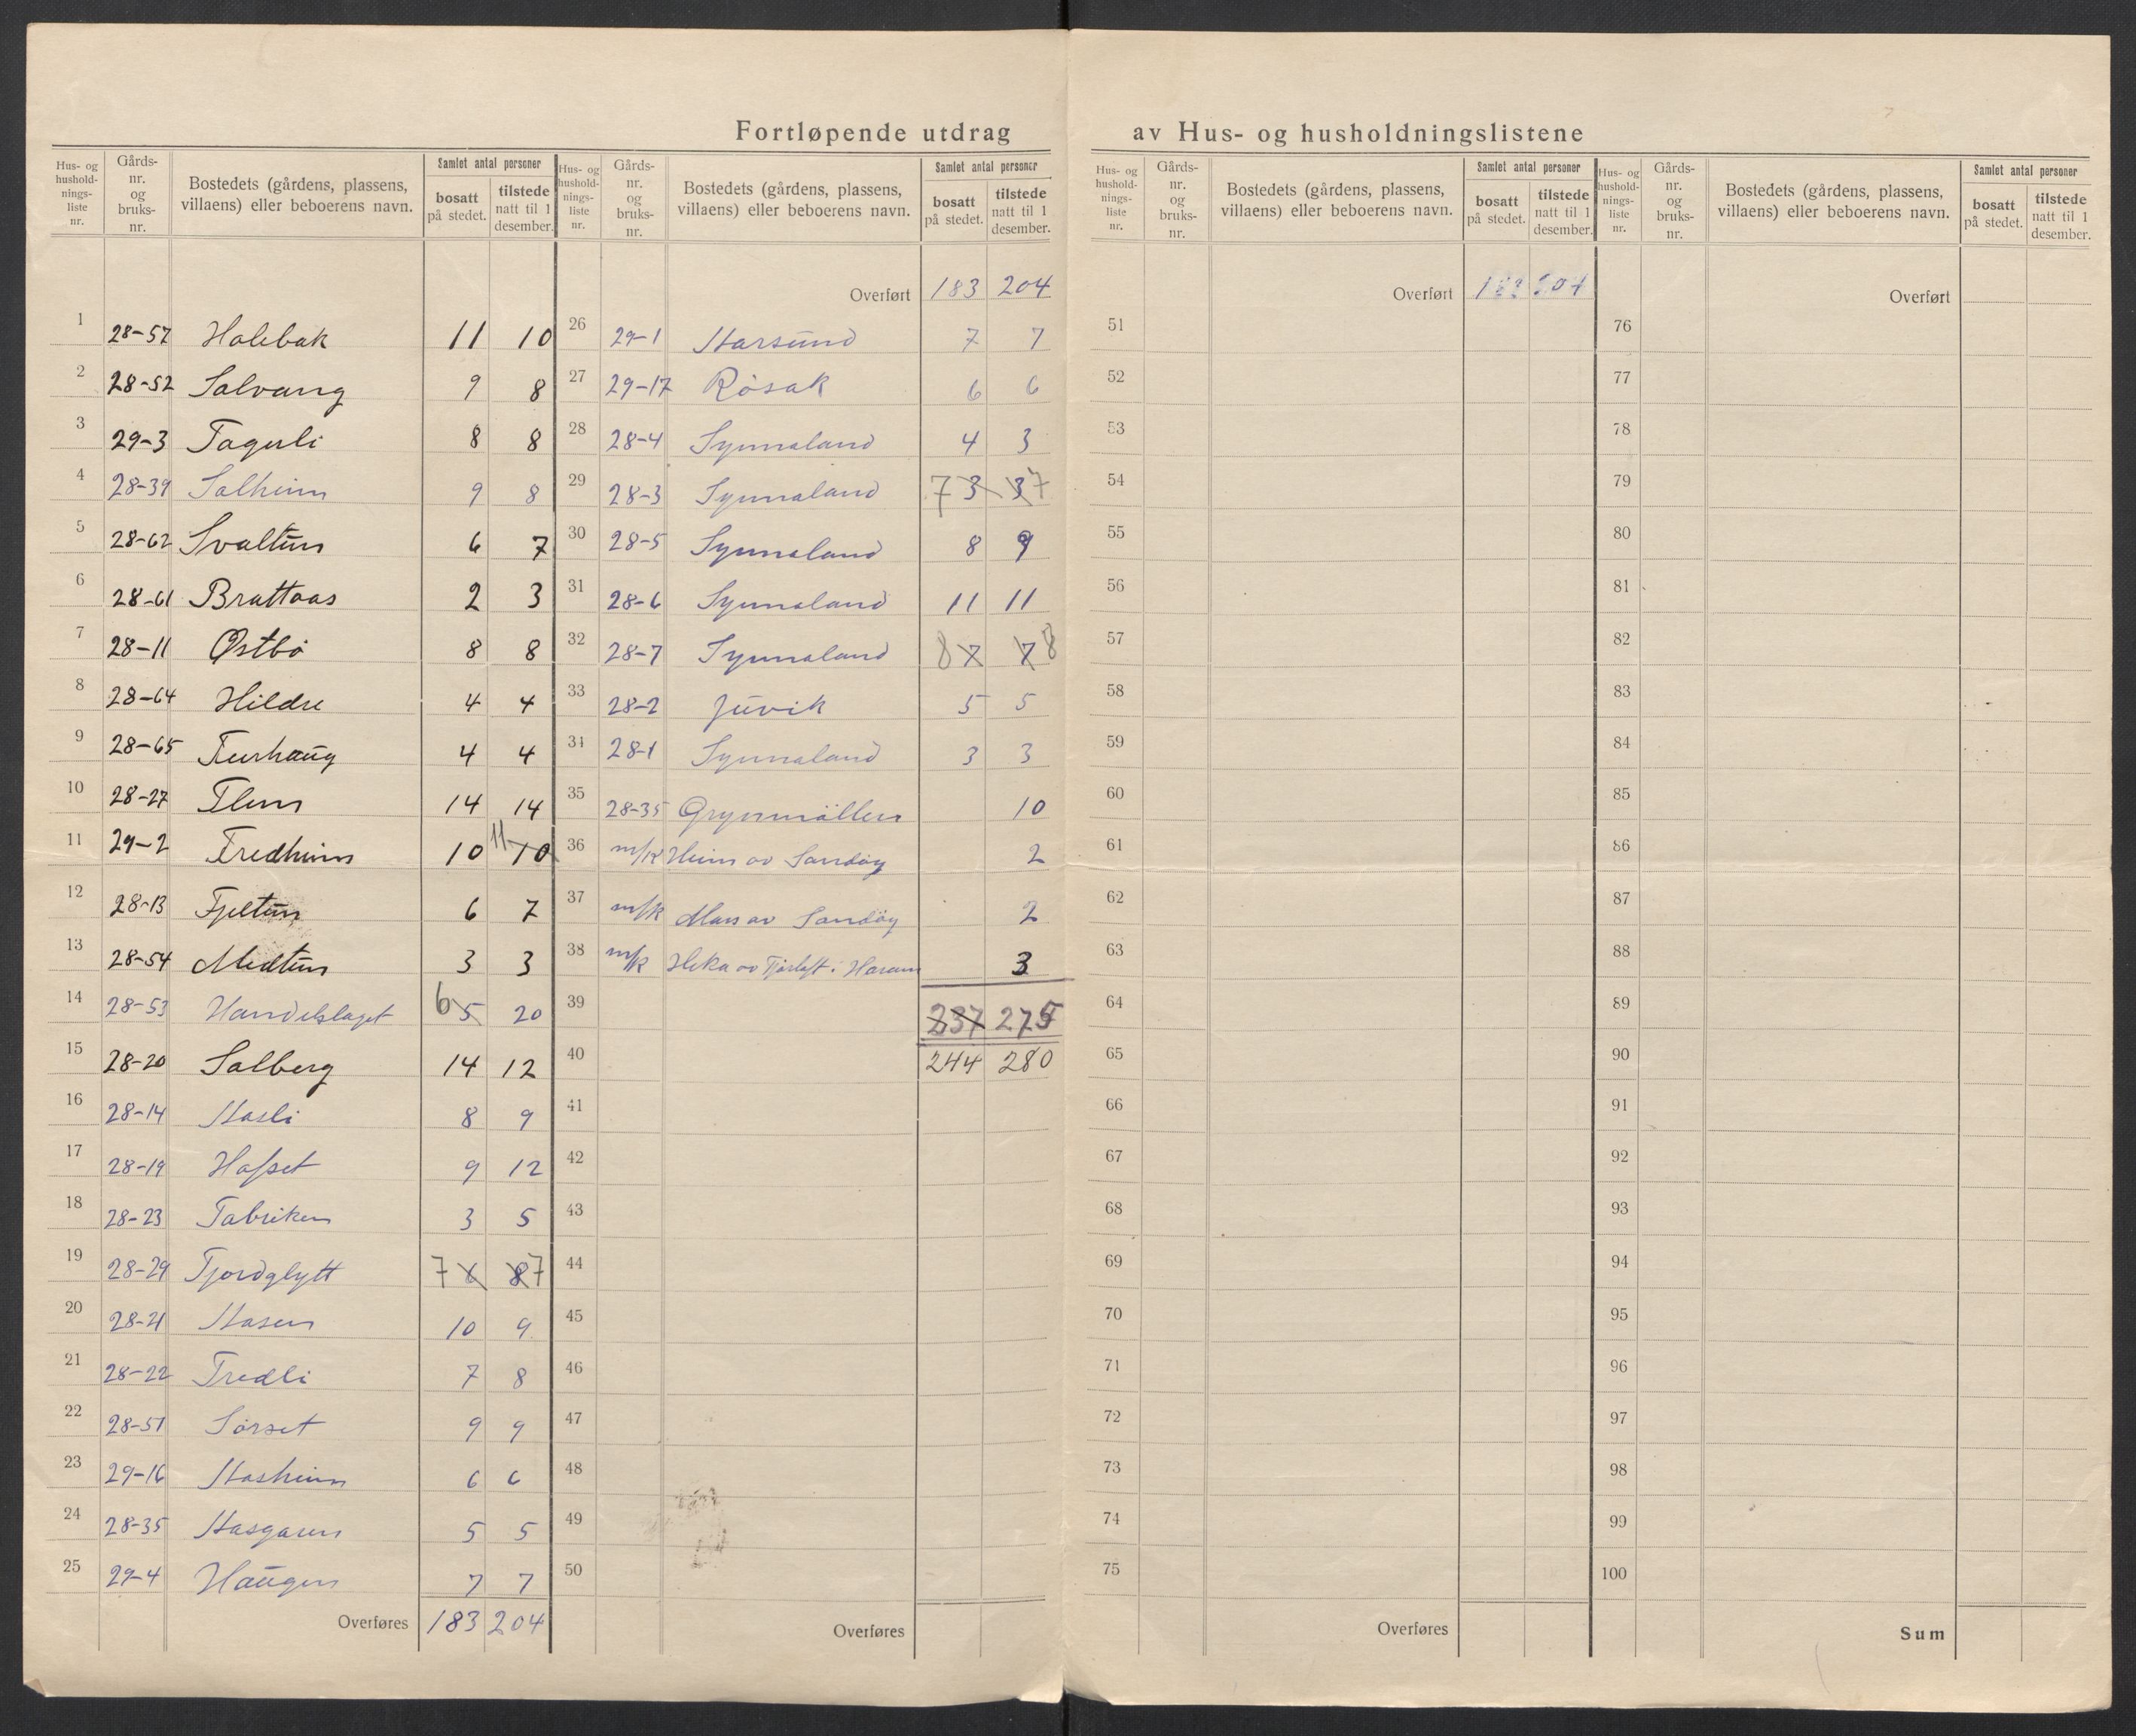 Fortløpende utdrag av Hus- og husholdningslistene
Hus- og hushold-nings-liste nr. Gårds-nr. og bruks-nr. Bostedets (gårdens, plassens, villaens) eller beboerens navn. Samlet antal personer bosatt på stedet. tilstede natt til 1 desember.
1 28-57 Holebak 11 10
2 28-52 Solvang 9 8
3 29-3 Fagerli 8 8
4 28-39 Solheim 9 8
5 28-62 Svaltun 6 7
6 28-61 Brattaas 2 3
7 28-11 Østbö 8 8
8 28-64 Hildre 4 4
9 28-65 Furhaug 4 4
10 28-27 Flem 14 14
11 29-2 Fredheim 10 11 10
12 28-13 Fjeltun 6 7
13 28-54 Midtun 3 3
14 28-53 Handelslaget 6 5 20
15 28-20 Solberg 14 12
16 28-14 Hasli 8 9
17 28-19 Hofset 9 12
18 28-23 Fabriken 3 5
19 28-29 Fjordglytt 7 6 8 7
20 28-21 Hasen 10 9
21 28-22 Fredli 7 8
22 28-51 Sörset 9 9
23 29-16 Hasheim 6 6
24 28-35 Hasgaren 5 5
25 29-4 Haugen 7 7
Overføres 183 204
Hus- og hushold-nings-liste nr. Gårds-nr. og bruks-nr. Bostedets (gårdens, plassens, villaens) eller beboerens navn. Samlet antal personer bosatt på stedet. tilstede natt til 1 desember.
Overført 183 204
26 29-1 Harsund 7 7
27 29-17 Rösak 6 6
28 28-4 Synnaland 4 3
29 28-3 Synnaland 7 3 3 7
30 28-5 Synnaland 8 9
31 28-6 Synnaland 11 11
32 28-7 Synnaland 8 7 7 8
33 28-2 Juvik 5 5
34 28-1 Synnaland 3 3
35 28-35 Grynmöllen 10
36 m/k Heim av Sandöy 2
37 m/k Mars av Sandöy 2
38 m/k av i Haram 3
39 237 275
40 244 280
41
42
43
44
45
46
47
48
49
50
Overføres
Hus- og hushold-nings-liste nr. Gårds-nr. og bruks-nr. Bostedets (gårdens, plassens, villaens) eller beboerens navn. Samlet antal personer bosatt på stedet. tilstede natt til 1 desember.
Overført 183 204
51
52
53
54
55
56
57
58
59
60
61
62
63
64
65
66
67
68
69
70
71
72
73
74
75
Overføres
Hus- og hushold-nings-liste nr. Gårds-nr. og bruks-nr. Bostedets (gårdens, plassens, villaens) eller beboerens navn. Samlet antal personer bosatt på stedet. tilstede natt til 1 desember.
Overført
76
77
78
79
80
81
82
83
84
85
86
87
88
89
90
91
92
93
94
95
96
97
98
99
100
Sum